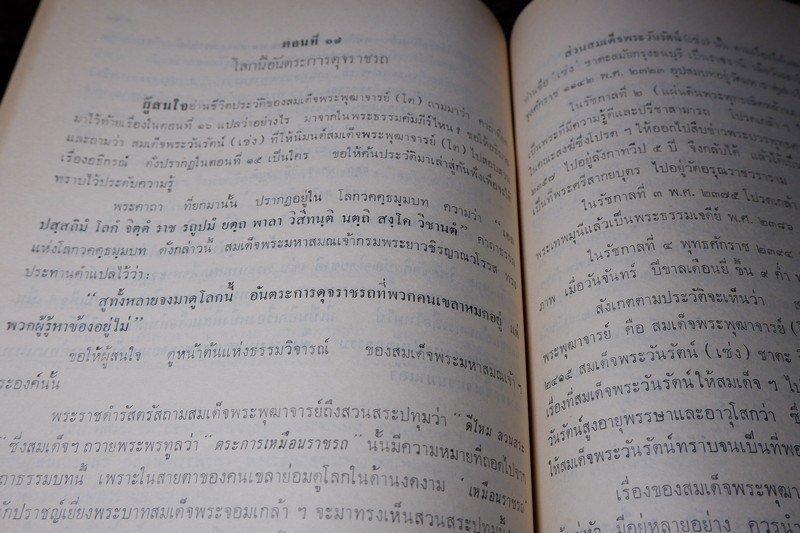 ตอนที่ ๑๘
โลกนี้อันตระการดุจราชรถ
ผู้สนใจอ่านชีวิตประวัติของสมเด็จพระพุฒาจารย์ (โต) ถามมาว่า
มาไว้ท้ายเรื่องในตอนที่ ๑๖ แปลว่าอย่างไร มาจากในพระธรรมคัมภีร์ไหน ๆ ขอให้
และถามว่า สมเด็จพระวันรัตน์ (เซ่ง) ที่ให้นิมนต์สมเด็จพระพุฒาจารย์ (โต) ไปสอบสวน
เรื่องอธิกรณ์ ดังปรากฏในตอนที่ ๑๕ เป็นใคร ขอให้ค้นประวัติมาเล่าสู่กันฟังเพื่อจะได้
ทราบไว้ประดับความรู้
พระคาถา ที่ยกมานั้น ปรากฏอยู่ใน โลกวคคธมฺมบท ความว่า " เอถ
ปสฺสถิมํ โลกํ จิตฺตํ ราช รถูปมํ ยตฺถ พาลา วิสีทนฺติ นตฺถิ สงฺโค วิชานตํ" คาถาธรรม
แห่งโลกวคคธมฺมบท ดังกล่าวนี้ สมเด็จพระมหาสมณเจ้ากรมพระยาวชิรญาณวโรรส ทรง
ประทานคำแปลไว้ว่า:
" สูทั้งหลายจงมาดูโลกนี้ อันตระการดุจราชรถที่พวกคนเขลาหมกอยู่ แต่
พวกผู้รู้หาข้องอยู่ไม่ "
ขอให้ผู้สนใจ ดูหน้าต้นแห่งธรรมวิจารณ์ ของสมเด็จพระมหาสมณเจ้า ฯ
ระองค์นั้น
พระราชดำรัสตรัสถามสมเด็จพระพุฒาจารย์ถึงสวนสระปทุมว่า " ดีไหม สวนสระ
" ซึ่งสมเด็จฯ ถวายพระพรทูลว่า " ตระการเหมือนราชรถ " นั้นมีความหมายที่ถอดไปจาก
าถาธรรมบทนี้ เพราะในสายตาของคนเขลาย่อมดูโลกในด้านงดงาม ' เหมือนราชรถ'
ักปราชญ์เยี่ยงพระบาทสมเด็จพระจอมเกล้า ฯ จะมาทรงเห็นสวนสระปทุมนี้
ส่วนสมเด็จพระวันรัตน์ (เซ่ง)
ชาตะสมัยกรุงธนบุรี
ศักราช ๑๑๔๒ พ.ศ. ๒๓๒๓ อุปสมบทอยู่วัด
ในรัชกาลที่ ๒
เป็นพระที่มีความรู้ดีและปรีชาสามารถ โปรดเกล้า ฯ
ในคณะสงฆ์ซึ่งโปรด ฯ ให้ออกไปสืบข่าวพระ
๒๓๕๗ ไปอยู่ลังกาทวีป ๕ ปี จึงกลับได้
เป็นที่พระศรีสากยบุตร ไปอยู่วัดอรุณราชวราราม
ในรัชกาลที่ ๓ พ.ศ. ๒๓๗๕ โปรดเกล้า
พระเทพมุนีแล้วเป็นพระธรรมเจดีย์ พ.ศ. ๒๓๘๖
ในรัชกาลที่ ๔ พุทธศักราช ๒๓๙๔
ภาพ เมื่อวันจันทร์ ปีขาลเดือนยี่ ขึ้น ๙ ค่ำ
สังเกตตามประวัติจะเห็นว่า
พระพุฒาจารย์ คือ สมเด็จพระพุฒาจารย์
๒๔๑๕ สมเด็จพระวันรัตน์ (เซ่ง) ชาตะ
เรื่องที่สมเด็จพระวันรัตน์ให้สมเด็จ ๆ ไป
วันรัตน์สูงอายุพรรษาและอาวุโสกว่า
ให้สมเด็จพระวันรัตน์ทราบจนเป็นที่พอ
เรื่องของสมเด็จพระพุฒา
มีอยู่หลายอย่าง ควรนำ